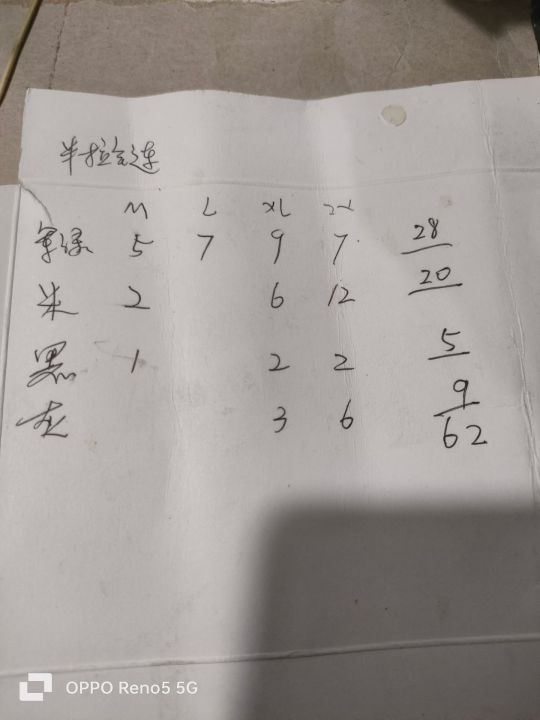 半拉合连
M L XL 2XL
军绿 5 7 9 7 28
米 2 6 12 20
黑 1 2 2 5
灰 3 6 9
62
OPPO Reno5 5G